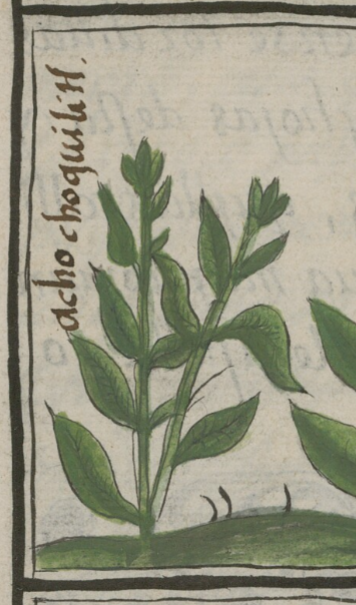 acho choquilitl.